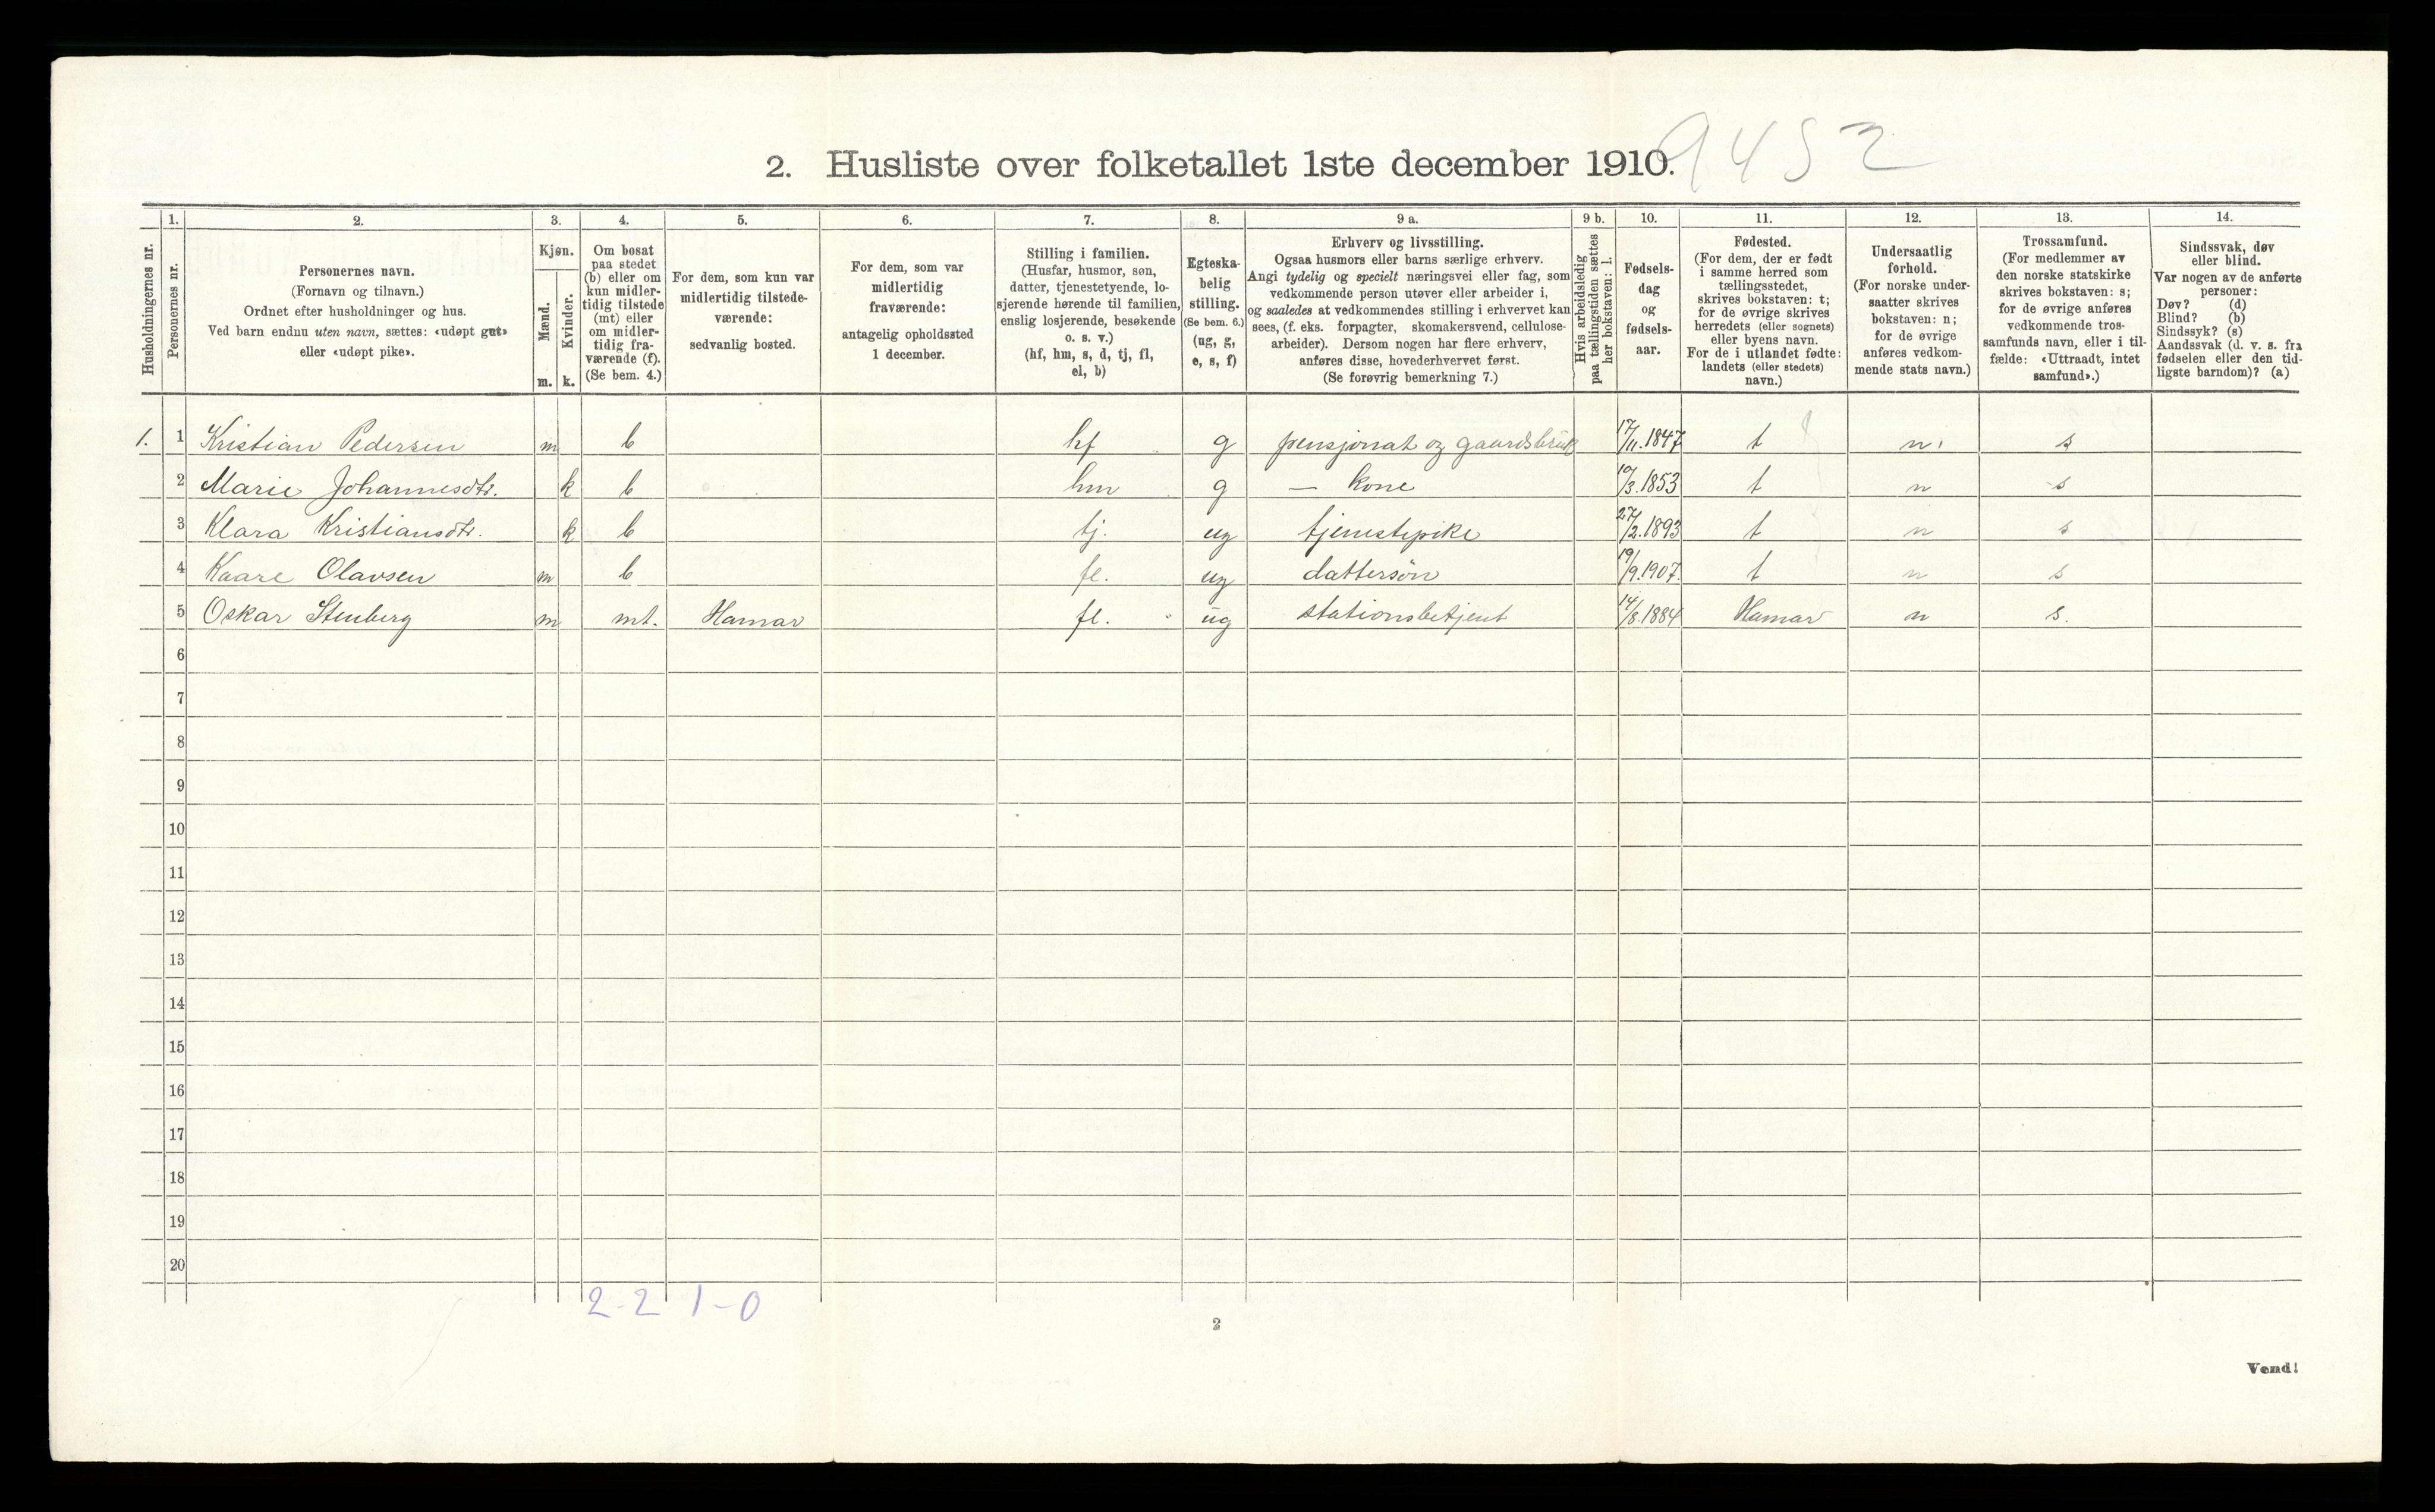 9452
2. Husliste over folketallet 1ste december 1910.
Husholdningernes nr.
1.
Personernes nr.
2.
Personernes navn.
(Fornavn og tilnavn.)
Ordnet efter husholdninger og hus.
Ved barn endnu uten navn, sættes: «udøpt gut»
eller «udøpt pike».
3.
Kjøn.
Mænd.
m.
Kvinder.
k.
4.
Om bosat
paa stedet
(b) eller om
kun midler-
tidig tilstede
(mt) eller
om midler-
tidig fra-
værende (f).
(Se bem. 4.)
5.
For dem, som kun var
midlertidig tilstede-
værende:
sedvanlig bosted.
6.
For dem, som var
midlertidig
fraværende:
antagelig opholdssted
1 december.
7.
Stilling i familien.
(Husfar, husmor, søn,
datter, tjenestetyende, lo-
sjerende hørende til familien,
enslig losjerende, besøkende
o. s. v.)
(hf, hm, s, d, tj, fl,
el, b)
8.
Egteska-
belig
stilling.
(Se bem. 6.)
(ug, g,
e, s, f)
9 a.
Erhverv og livsstilling.
Ogsaa husmors eller barns særlige erhverv.
Angi tydelig og specielt næringsvei eller fag, som
vedkommende person utøver eller arbeider i,
og saaledes at vedkommendes stilling i erhvervet kan
sees, (f. eks. forpagter, skomakersvend, cellulose-
arbeider). Dersom nogen har flere erhverv,
anføres disse, hovederhvervet først.
(Se forøvrig bemerkning 7.)
9 b.
Hvis arbeidsledig
paa tællingstiden sættes
her bokstaven: l.
10.
Fødsels-
dag
og
fødsels-
aar.
11.
Fødested.
(For dem, der er født
i samme herred som
tællingsstedet,
skrives bokstaven: t;
for de øvrige skrives
herredets (eller sognets)
eller byens navn.
For de i utlandet fødte:
landets (eller stedets)
navn.)
12.
Undersaatlig
forhold.
(For norske under-
saatter skrives
bokstaven: n;
for de øvrige
anføres vedkom-
mende stats navn.)
13.
Trossamfund.
(For medlemmer av
den norske statskirke
skrives bokstaven: s;
for de øvrige anføres
vedkommende tros-
samfunds navn, eller i til-
fælde: «Uttraadt, intet
samfund».)
14.
Sindssvak, døv
eller blind.
Var nogen av de anførte
personer:
Døv? (d)
Blind? (b)
Sindssyk? (s)
Aandssvak (d. v. s. fra
fødselen eller den tid-
ligste barndom)? (a)
1. 1 Kristian Pedersen m b hf g pensjonat og gaardsbruk 17/11.1847 t n. s
2 Marie Johannesdtr. k b hm g — kone 10/3.1853 t n s
3 Klara Kristiansdtr. k b tj. ug tjenestepike 27/2.1893 t n s
4 Kaare Olavsen m b fl. ug dattersön 19/9.1907 t n s
5 Oskar Stenberg m mt. Hamar fl. ug stationsbetjent 14/8.1884 Hamar n s.
6
7
8
9
10
11
12
13
14
15
16
17
18
19
20
2-2 1-0
2
Vend!